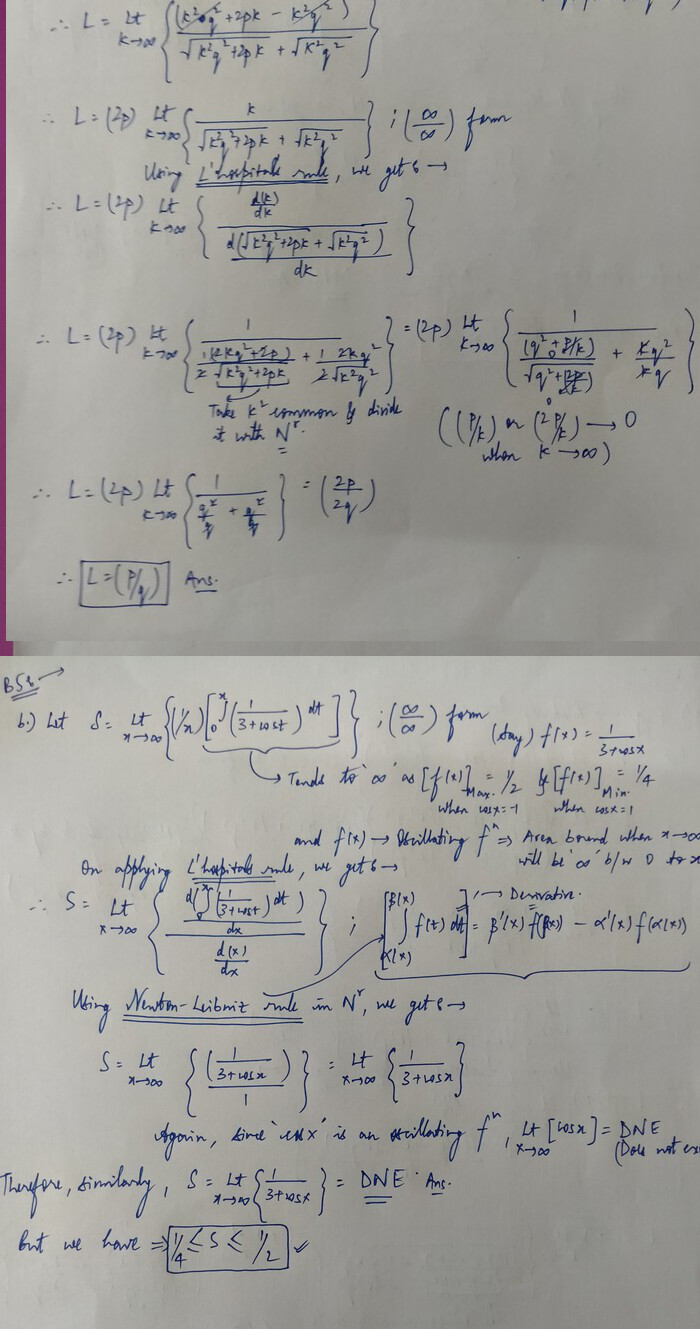 ∴ L = Lt k→∞ { (k²q² + 2pk - k²q²) / (√(k²q²+2pk) + √(k²q²)) }
∴ L = (2p) Lt k→∞ { k / (√(k²q²+2pk) + √(k²q²)) } ; (∞/∞) form
Using L'hospitals rule, we get :→
∴ L = (2p) Lt k→∞ { (d(k)/dk) / (d(√(k²q²+2pk) + √(k²q²))/dk) }
∴ L = (2p) Lt k→∞ { 1 / (1/2 (2kq²+2p)/√(k²q²+2pk) + 1/2 2kq²/√(k²q²)) } = (2p) Lt k→∞ { 1 / ((q²+p/k)/√(q²+(2p/k)) + kq²/kq) }
Take k² common & divide
it with Nʳ.
((p/k) or (2p/k) → 0
when k→∞)
∴ L = (2p) Lt k→∞ { 1 / (q²/q + q²/q) } = (2p/2q)
∴ L = (p/q) Ans.
B58 →
b.) Let S = Lt x→∞ { (1/x) [ ₀∫ˣ (1/(3+cost)) dt ] } ; (∞/∞) form (say) f(x) = 1/(3+cosx)
→ Tends to '∞' as [f(x)] Max. = 1/2 & [f(x)] Min. = 1/4
when cosx=-1 when cosx=1
and f(x) → Oscillating fⁿ ⇒ Area bound when x→∞
will be '∞' b/w 0 to x
On applying L'hospitals rule, we get :→
∴ S = Lt x→∞ { (d(₀∫ˣ (1/(3+cost)) dt)/dx) / (d(x)/dx) } ; [ ∫ α(x) to β(x) f(t) dt ]' → Derivative. = β'(x) f(β(x)) - α'(x) f(α(x))
Using Newton-Leibniz rule in Nʳ, we get :→
S = Lt x→∞ { (1/(3+cosx)) / 1 } = Lt x→∞ { 1/(3+cosx) }
Again, since 'cosx' is an oscillating fⁿ, Lt x→∞ [cosx] = DNE
(Does not
Therefore, similarly, S = Lt x→∞ { 1/(3+cosx) } = DNE Ans.
But we have ⇒ 1/4 ≤ S ≤ 1/2 ✓